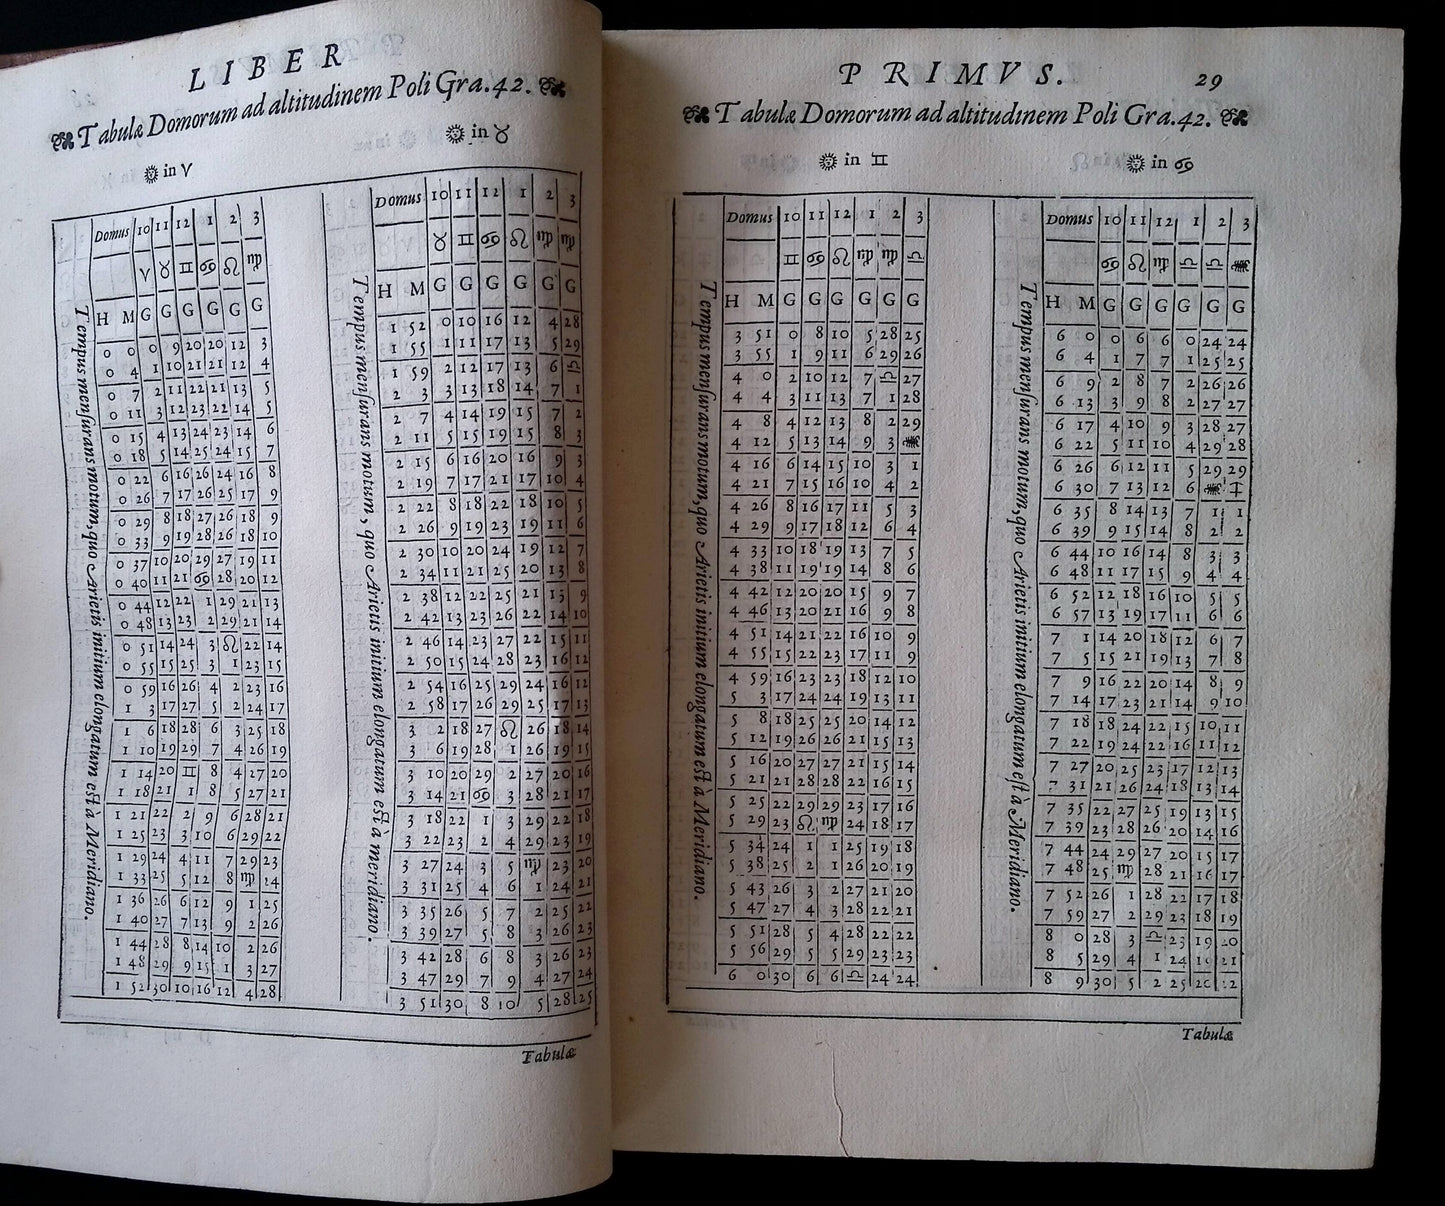 LIBER
Tabulæ Domorum ad altitudinem Poli Gra.42.
☉ in ♈
Tempus menſurans motum, quo Arietis initium elongatum eſt à Meridiano.
Domus 10 11 12 1 2 3
♈ ♉ ♊ ♋ ♌ ♍
H M G G G G G G
0 0 0 9 20 20 12 3
0 4 1 10 21 21 12 4
0 7 2 11 22 21 13 5
0 11 3 12 23 22 14 5
0 15 4 13 24 23 14 6
0 18 5 14 25 24 15 7
0 22 6 16 26 24 16 8
0 26 7 17 26 25 17 9
0 29 8 18 27 26 18 9
0 33 9 19 28 26 18 10
0 37 10 20 29 27 19 11
0 40 11 21 ♋ 28 20 12
0 44 12 22 1 29 21 13
0 48 13 23 2 29 21 14
0 51 14 24 3 ♌ 22 14
0 55 15 25 3 1 23 15
0 59 16 26 4 2 23 16
1 3 17 27 5 2 24 17
1 6 18 28 6 3 25 18
1 10 19 29 7 4 26 19
1 14 20 ♊ 8 4 27 20
1 18 21 1 8 5 27 21
1 21 22 2 9 6 28 21
1 25 23 3 10 6 29 22
1 29 24 4 11 7 29 23
1 33 25 5 12 8 ♍ 24
1 36 26 6 12 9 1 25
1 40 27 7 13 9 2 26
1 44 28 8 14 10 2 26
1 48 29 9 15 1 3 27
1 52 30 10 16 12 4 28
☉ in ♉
Tempus menſurans motum, quo Arietis initium elongatum eſt à meridiano.
Domus 10 11 12 1 2 3
♉ ♊ ♋ ♌ ♍ ♍
H M G G G G G G
1 52 0 10 16 12 4 28
1 55 1 11 17 13 5 29
1 59 2 12 17 13 6 ♎
2 3 3 13 18 14 7 1
2 7 4 14 19 15 7 2
2 11 5 15 19 15 8 3
2 15 6 16 20 16 9 3
2 19 7 17 21 17 10 4
2 22 8 18 22 18 10 5
2 26 9 19 23 19 11 6
2 30 10 20 24 19 12 7
2 34 11 21 25 20 13 8
2 38 12 22 25 21 13 9
2 42 13 23 26 22 14 10
2 46 14 23 27 22 15 11
2 50 15 24 28 23 16 12
2 54 16 25 29 24 16 12
2 58 17 26 29 25 17 13
3 2 18 27 ♌ 26 18 14
3 6 19 28 1 26 19 15
3 10 20 29 2 27 20 16
3 14 21 ♋ 3 28 21 17
3 18 22 1 3 29 22 18
3 22 23 2 4 29 23 19
3 27 24 3 5 ♍ 23 20
3 31 25 4 6 1 24 21
3 35 26 5 7 2 25 22
3 39 27 5 8 3 26 23
3 42 28 6 8 3 26 23
3 47 29 7 9 4 27 24
3 51 30 8 10 5 28 25
Tabulæ
PRIMVS. 29
Tabulæ Domorum ad altitudinem Poli Gra.42.
☉ in ♊
Tempus menſurans motum, quo Arietis initium elongatum eſt à Meridiano.
Domus 10 11 12 1 2 3
♊ ♋ ♌ ♍ ♍ ♎
H M G G G G G G
3 51 0 8 10 5 28 25
3 55 1 9 11 6 29 26
4 0 2 10 12 7 ♎ 27
4 4 3 11 13 7 1 28
4 8 4 12 13 8 2 29
4 12 5 13 14 9 3 ♏
4 16 6 14 15 10 3 1
4 21 7 15 16 10 4 2
4 26 8 16 17 11 5 3
4 29 9 17 18 12 6 4
4 33 10 18 19 13 7 5
4 38 11 19 19 14 8 6
4 42 12 20 20 15 9 7
4 46 13 20 21 16 9 8
4 51 14 21 22 16 10 9
4 55 15 22 23 17 11 9
4 59 16 23 23 18 12 10
5 3 17 24 24 19 13 11
5 8 18 25 25 20 14 12
5 12 19 26 26 21 15 13
5 16 20 27 27 21 15 14
5 21 21 28 28 22 16 15
5 25 22 29 29 23 17 16
5 29 23 ♌ ♍ 24 18 17
5 34 24 1 1 25 19 18
5 38 25 2 1 26 20 19
5 43 26 3 2 27 21 20
5 47 27 4 3 28 22 21
5 51 28 5 4 28 22 22
5 56 29 5 5 29 23 23
6 0 30 6 6 ♎ 24 24
☉ in ♋
Tempus menſurans motum, quo Arietis initium elongatum eſt à Meridiano.
Domus 10 11 12 1 2 3
♋ ♌ ♍ ♎ ♎ ♏
H M G G G G G G
6 0 0 6 6 0 24 24
6 4 1 7 7 1 25 25
6 9 2 8 7 2 26 26
6 13 3 9 8 2 27 27
6 17 4 10 9 3 28 27
6 22 5 11 10 4 29 28
6 26 6 12 11 5 29 29
6 30 7 13 12 6 ♏ ♐
6 35 8 14 13 7 1 1
6 39 9 15 14 8 2 2
6 44 10 16 14 8 3 3
6 48 11 17 15 9 4 4
6 52 12 18 16 10 5 5
6 57 13 19 17 11 6 6
7 1 14 20 18 12 6 7
7 5 15 21 19 13 7 8
7 9 16 22 20 14 8 9
7 14 17 23 21 14 9 10
7 18 18 24 22 15 10 11
7 22 19 24 22 16 11 12
7 27 20 25 23 17 12 13
7 31 21 26 24 18 13 14
7 35 22 27 25 19 13 15
7 39 23 28 26 20 14 16
7 44 24 29 27 20 15 17
7 48 25 ♍ 28 21 16 17
7 52 26 1 28 22 17 18
7 59 27 2 29 23 18 19
8 0 28 3 ♎ 23 19 20
8 5 29 4 1 24 19 21
8 9 30 5 2 25 20 22
Tabulæ